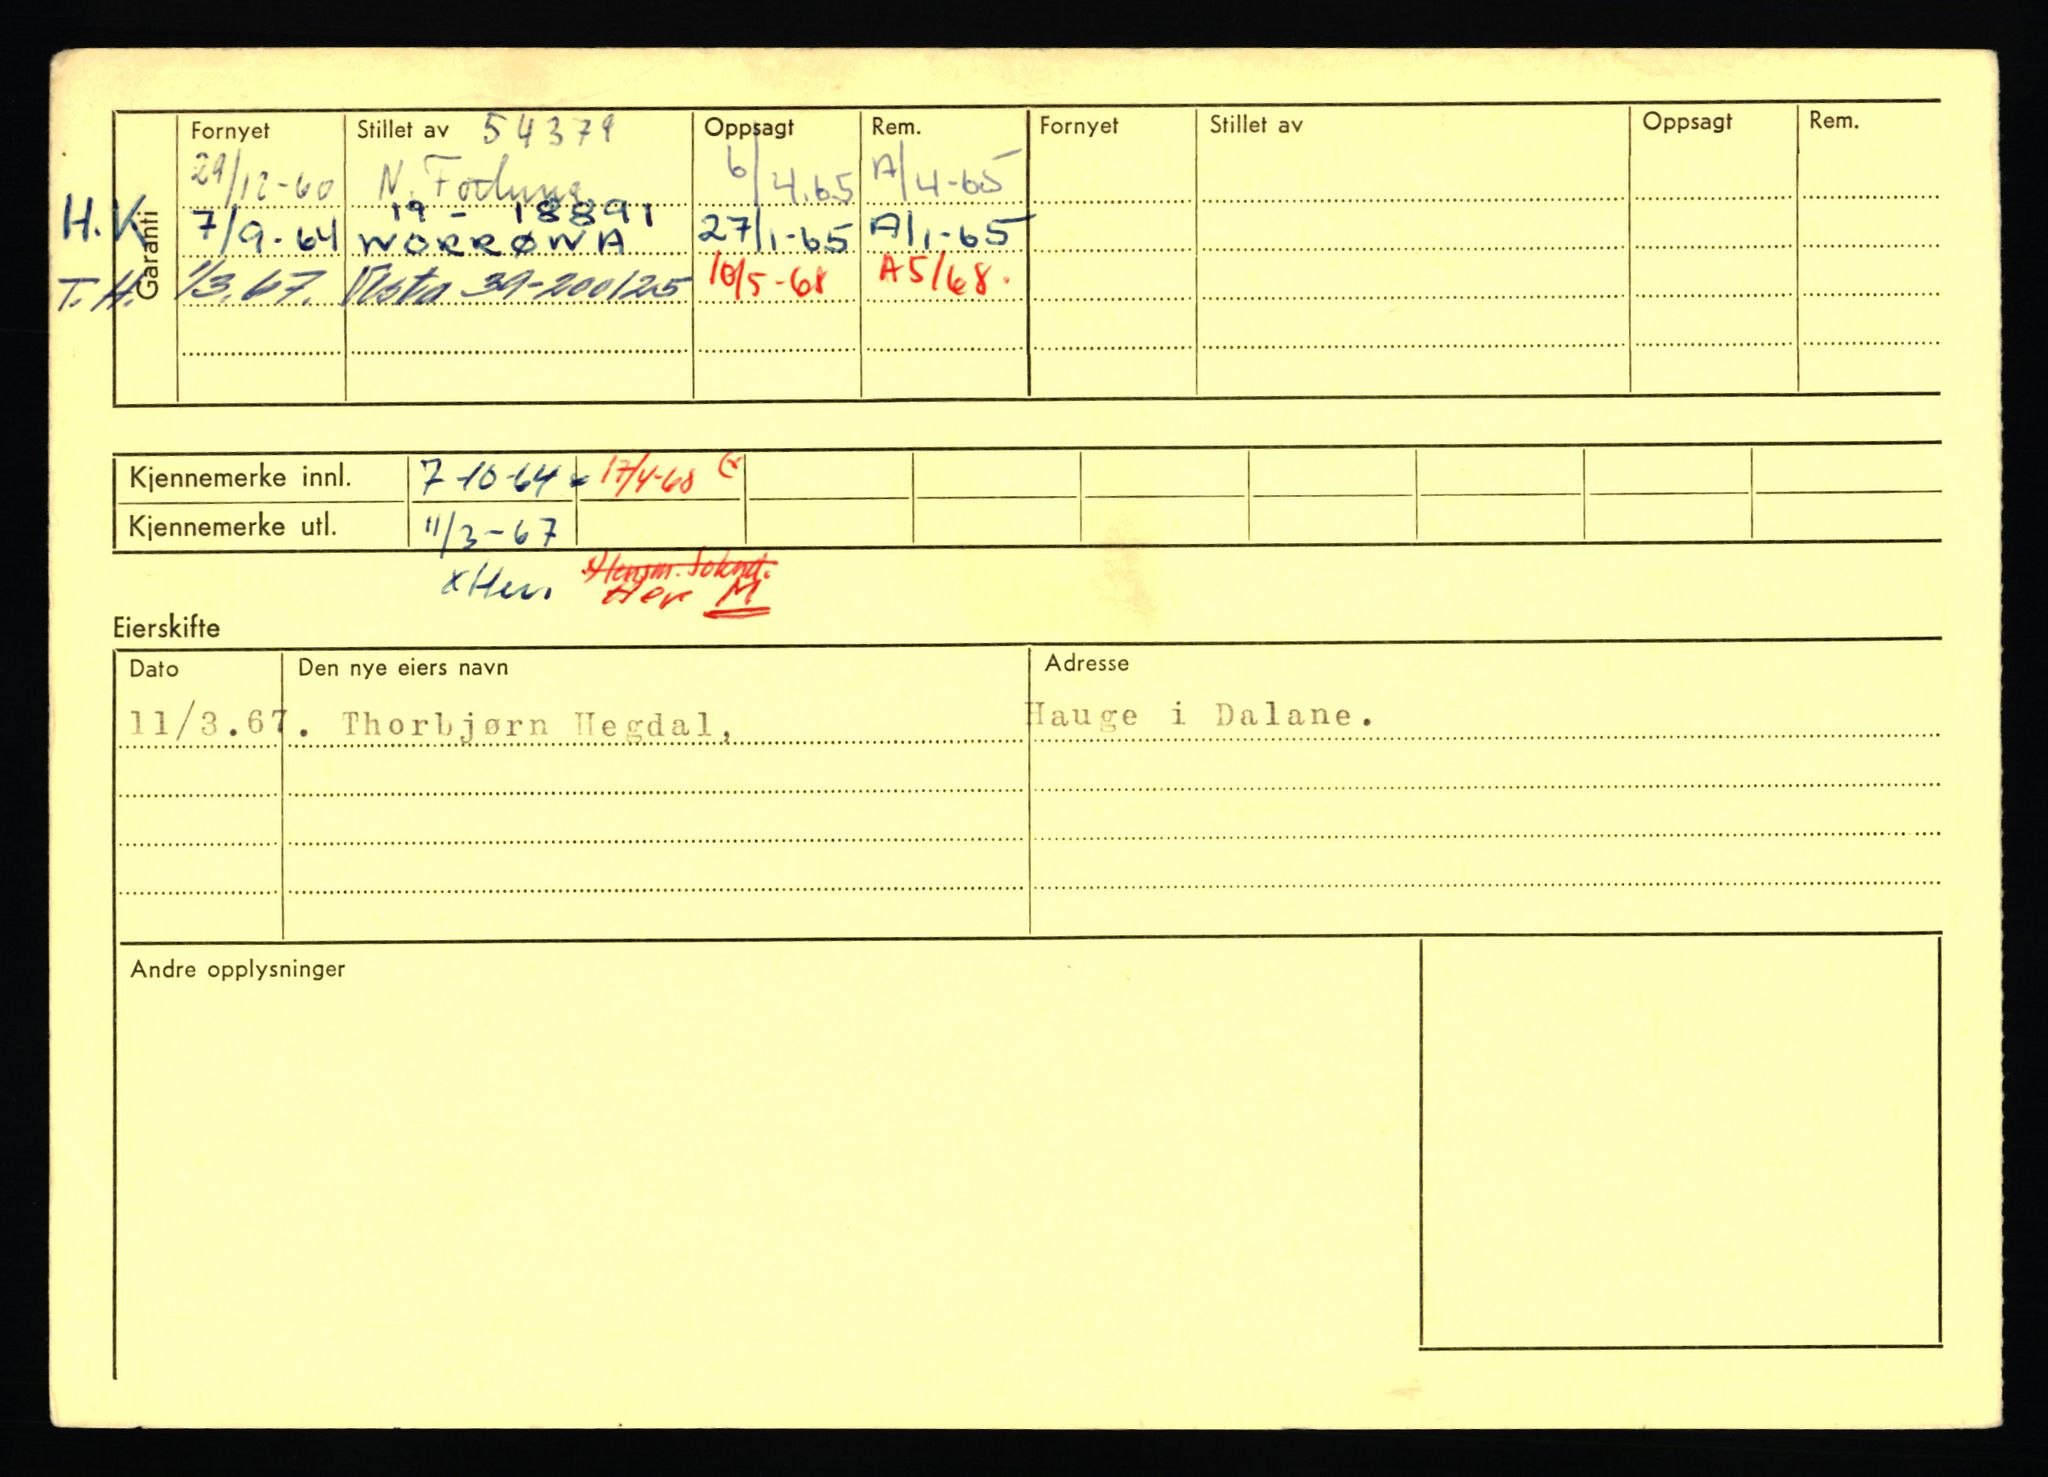 Fornyet Stillet av 54379 Oppsagt Rem. Fornyet Stillet av Oppsagt Rem.
29/12-60 N. 6/4.65 A/4-65
19 - 18891
H.K. 7/9-64 NORRØNA 27/1-65 A/1-65
T.H. 1/3.67. Vesta 39-200125 10/5-68 A5/68.
Garanti
Kjennemerke innl. 7-10-64 x 17/4-68 (x
Kjennemerke utl. 11/3-67
x Her. x) Lensm. Sokndal.
Her M
Eierskifte
Dato Den nye eiers navn Adresse
11/3.67. Thorbjørn Hegdal, Hauge i Dalane.
Andre opplysninger